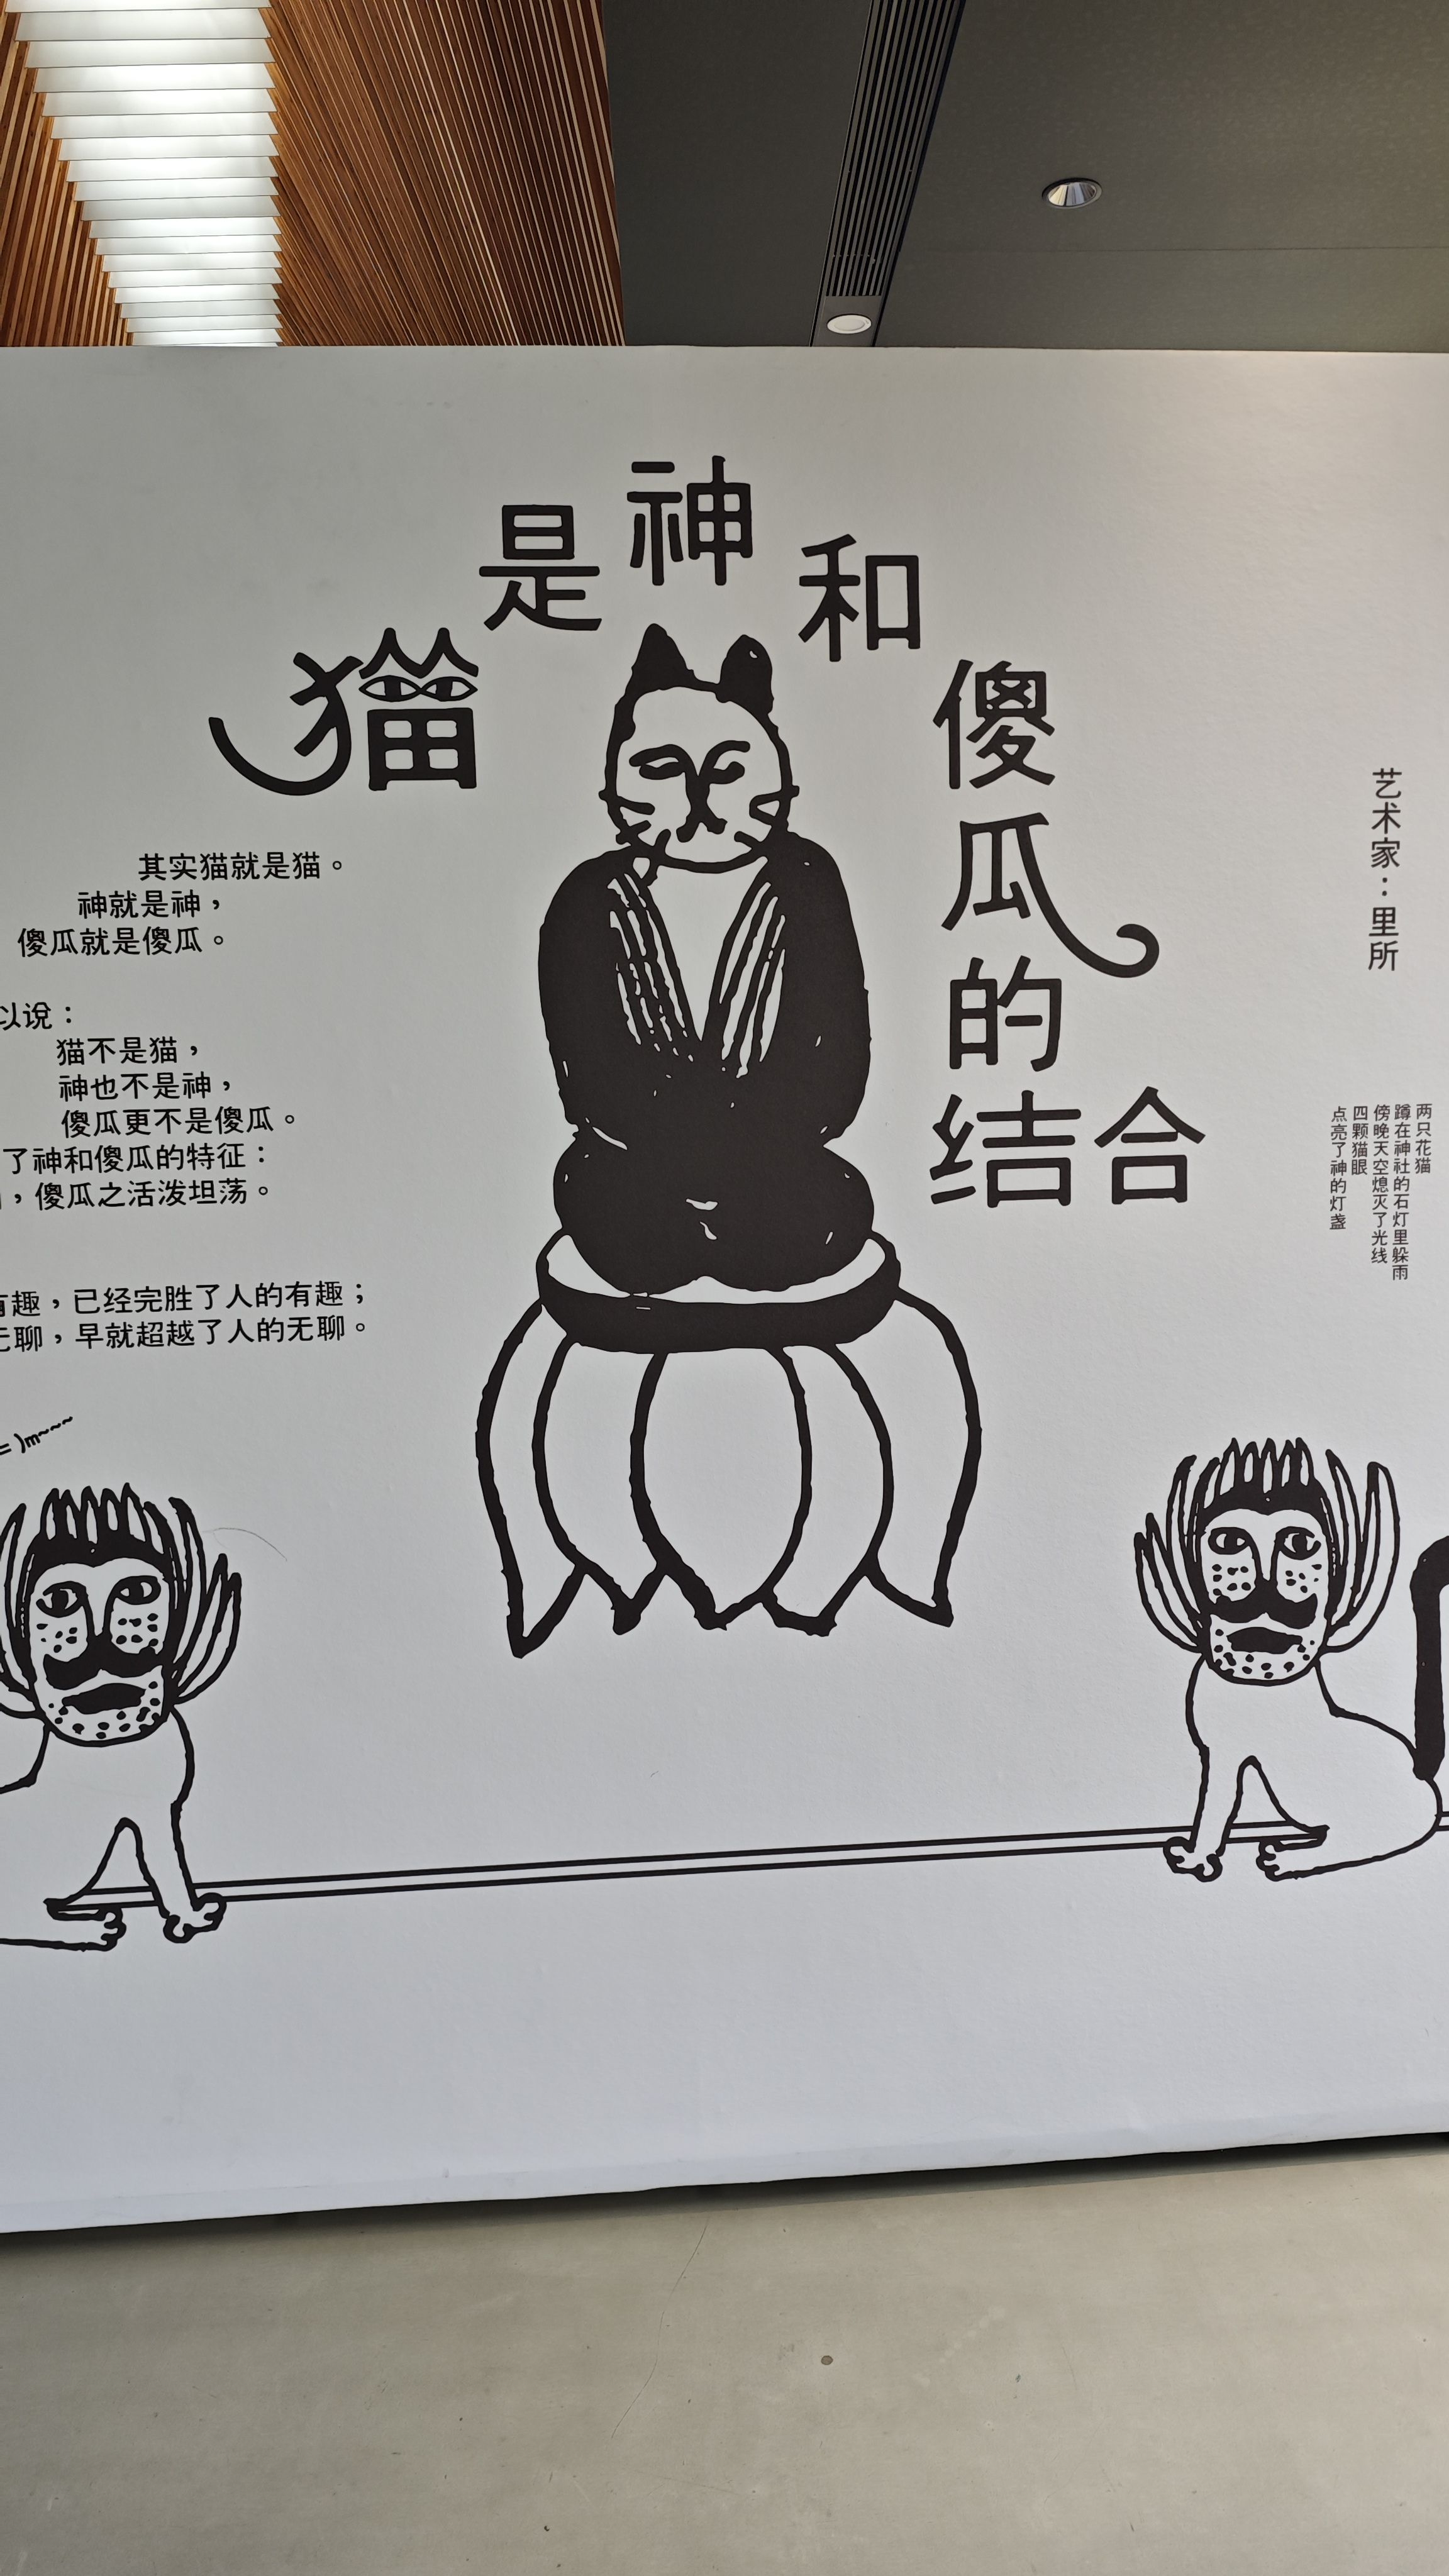 猫是神和傻瓜的结合
其实猫就是猫。
神就是神，
傻瓜就是傻瓜。
以说：
猫不是猫，
神也不是神，
傻瓜更不是傻瓜。
了神和傻瓜的特征：
，傻瓜之活泼坦荡。
有趣，已经完胜了人的有趣；
无聊，早就超越了人的无聊。
=)m~~~
艺术家：里所
两只花猫
蹲在神社的石灯里躲雨
傍晚天空熄灭了光线
四颗猫眼
点亮了神的灯盏